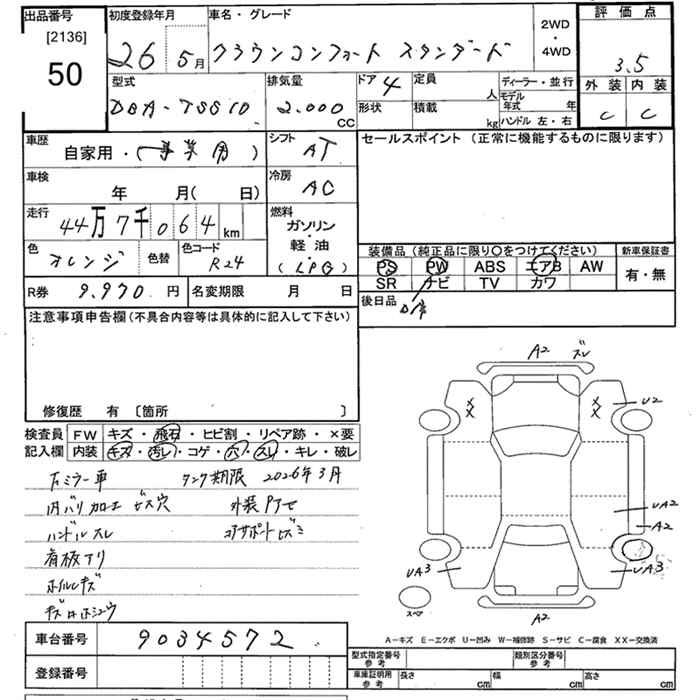 出品番号 [2136] 50
初度登録年月 26 5月
車名・グレード クラウンコンフォート スタンダード
2WD・4WD
評価点 3.5
外装 C 内装 C
型式 DBA-TSS10
排気量 2.000 CC
ドア 4 形状
定員 人 積載 kg
ディーラー・並行
モデル年式 年
ハンドル 左・右
車歴 自家用・(事業用)
シフト AT
セールスポイント(正常に機能するものに限ります)
車検 年 月( 日)
冷房 AC
走行 44万7千064 km
燃料 ガソリン・軽油 (LPG)
色 オレンジ 色替 色コード R24
装備品(純正品に限り○をつけてください)
PS PW ABS エアB AW
SR ナビ TV カワ
新車保証書 有・無
R券 9.970円 名変期限 月 日
後日品
注意事項申告欄(不具合内容等は具体的に記入して下さい)
修復歴 有〔箇所 〕
検査員記入欄
FW キズ・飛石・ヒビ割・リペア跡・×要
内装 キズ・汚レ・コゲ・穴・スレ・キレ・破レ
タンク期限 2026年3月
内バリ加工 ビス穴 外装
ハンドルスレ コアサポートヒズミ
看板アリ
ホイルキズ
A2 スレ
XX XX U2
UA2
A2
UA3 UA3
スペア A2
A-キズ E-エクボ U-凹み W-補修跡 S-サビ C-腐食 XX-交換済
車台番号 9034572
登録番号
型式指定番号 参考 類別区分番号 参考
車庫証明用 参考 長さ cm 幅 cm 高さ cm